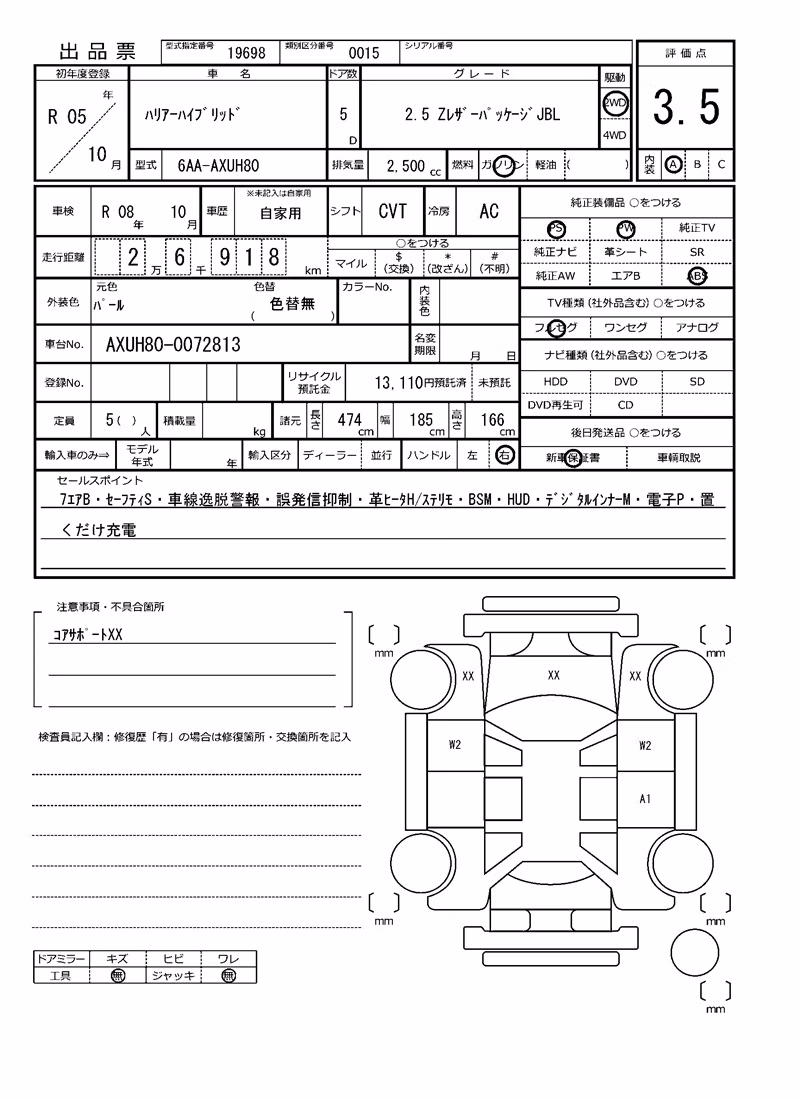 出品票 型式指定番号 19698 類別区分番号 0015 シリアル番号
評価点
3.5
内装 A B C
初年度登録 車名 ドア数 グレード 駆動
R 05 年 10 月
ﾊﾘｱｰﾊｲﾌﾞﾘｯﾄﾞ 5 D 2.5 ZﾚｻﾞｰﾊﾟｯｹｰｼﾞJBL 2WD 4WD
型式 6AA-AXUH80 排気量 2,500 cc 燃料 ガソリン 軽油 ( )
車検 R 08 年 10 月 車歴 ※未記入は自家用 自家用 シフト CVT 冷房 AC
走行距離 2 万 6 千 9 1 8 km
○をつける
マイル $(交換) *(改ざん) #(不明)
外装色 元色 ﾊﾟｰﾙ 色替 ( 色替無 ) カラーNo. 内装色
車台No. AXUH80-0072813 名変期限 月 日
登録No. リサイクル預託金 13,110円預託済 未預託
定員 5( ) 人 積載量 kg 諸元 長さ 474 cm 幅 185 cm 高さ 166 cm
輸入車のみ⇒ モデル年式 年 輸入区分 ディーラー 並行 ハンドル 左 右
純正装備品 ○をつける
PS PW 純正TV
純正ナビ 革シート SR
純正AW エアB ABS
TV種類(社外品含む) ○をつける
フルセグ ワンセグ アナログ
ナビ種類(社外品含む) ○をつける
HDD DVD SD
DVD再生可 CD
後日発送品 ○をつける
新車保証書 車輌取説
セールスポイント
7ｴｱB・ｾｰﾌﾃｨS・車線逸脱警報・誤発信抑制・革ﾋｰﾀH/ｽﾃﾘﾓ・BSM・HUD・ﾃﾞｼﾞﾀﾙｲﾝﾅｰM・電子P・置
くだけ充電
注意事項・不具合箇所
ｺｱｻﾎﾟｰﾄXX
検査員記入欄：修復歴「有」の場合は修復箇所・交換箇所を記入
mm mm
XX XX XX
W2 W2
A1
mm mm
mm
ドアミラー キズ ヒビ ワレ
工具 無 ジャッキ 無